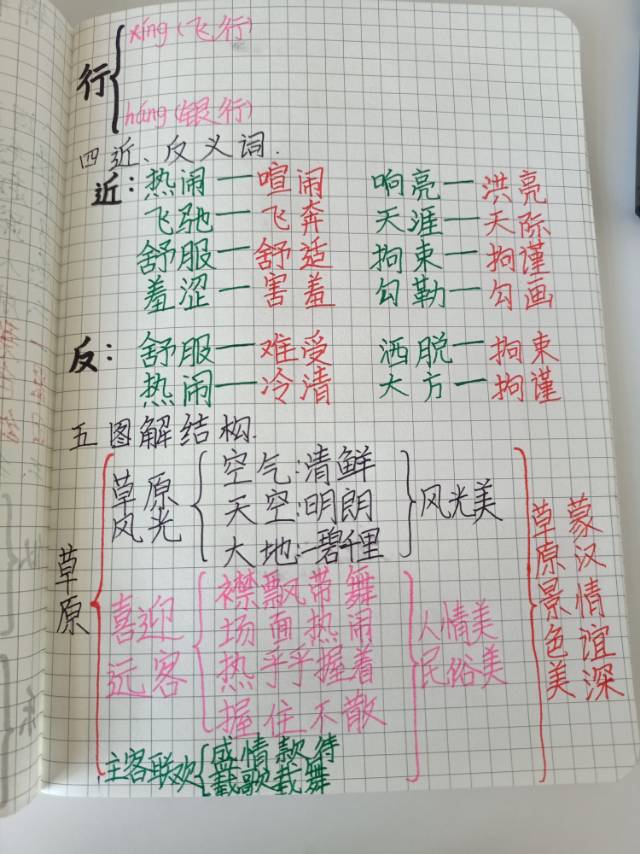 xíng(飞行)
行
háng(银行)
四近、反义词.
近:热闹—喧闹 响亮—洪亮
飞驰—飞奔 天涯—天际
舒服—舒适 拘束—拘谨
羞涩—害羞 勾勒—勾画
反:舒服—难受 洒脱—拘束
热闹—冷清 大方—拘谨
五图解结构.
草原
草原风光
空气:清鲜
天空:明朗
大地:一碧千里
风光美
喜迎远客
襟飘带舞
场面热闹
热乎乎握着
握住不散
人情美
民俗美
主客联欢
盛情款待
载歌载舞
草原景色美
蒙汉情谊深